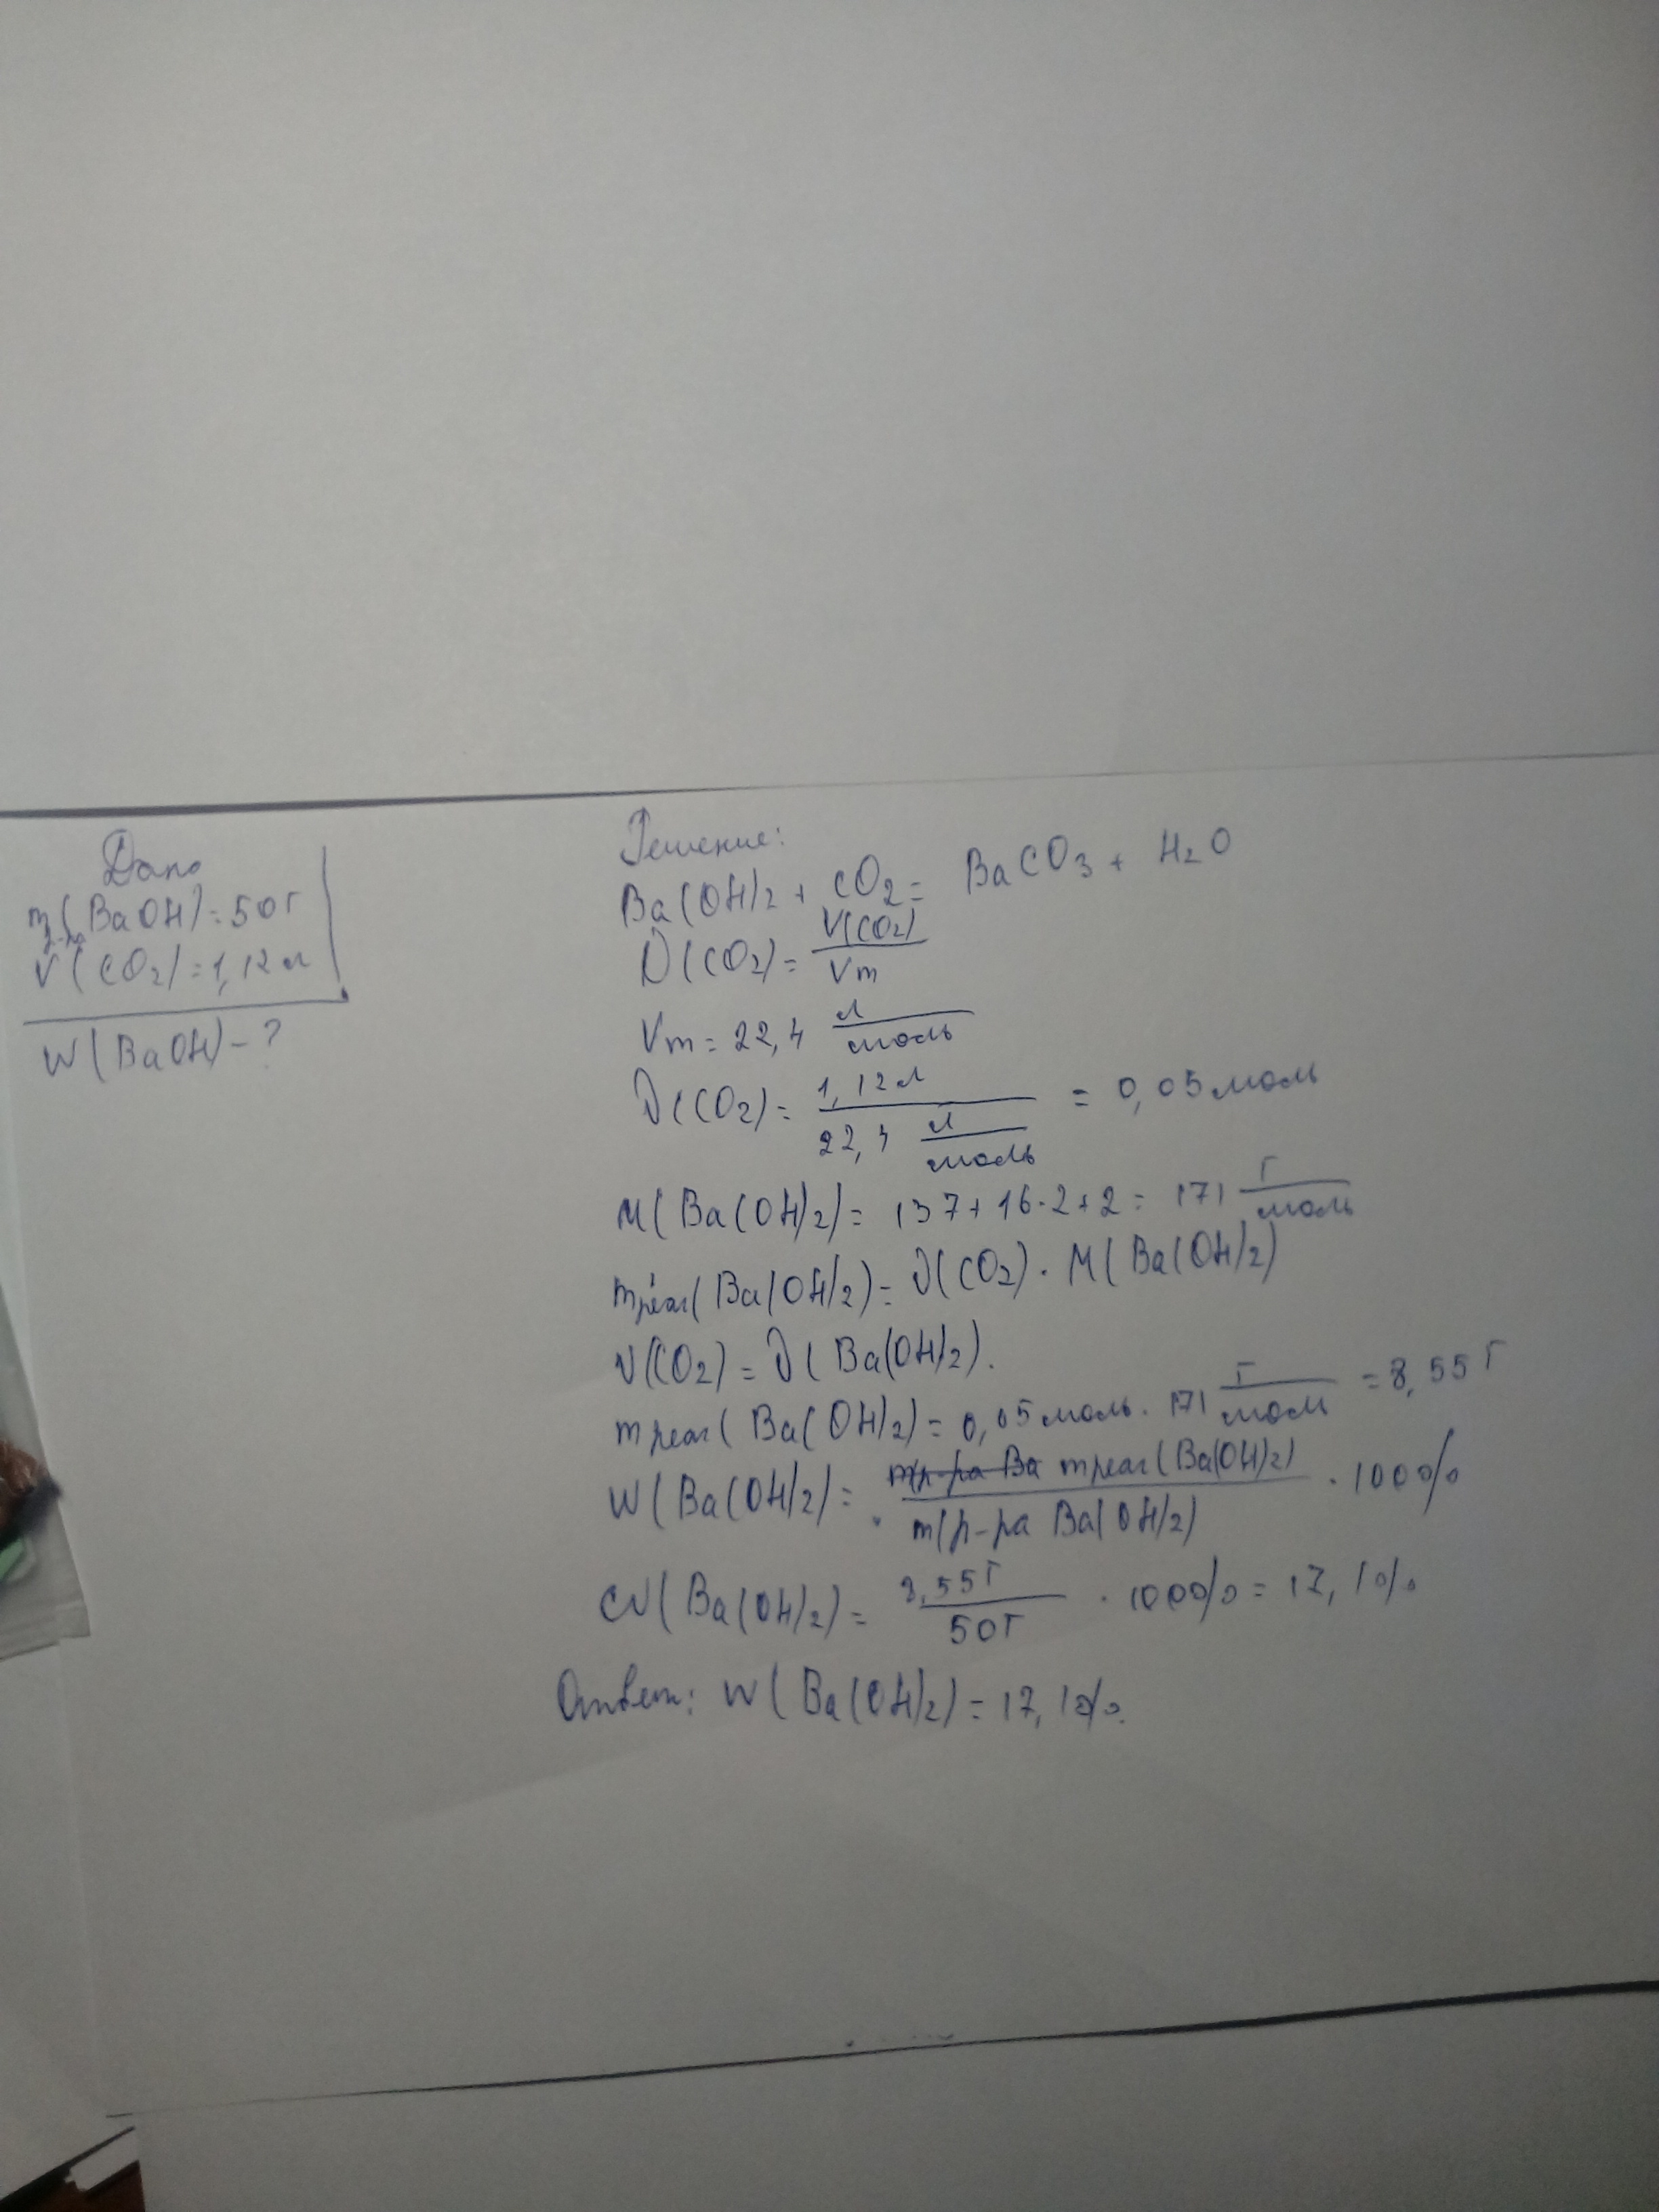 Дано
m р-ра (BaOH) = 50 г
V (CO2) = 1,12 л
W (BaOH) - ?
Решение:
Ba(OH)2 + CO2 = BaCO3 + H2O
ν(CO2) = V(CO2) / Vm
Vm = 22,4 л/моль
ν(CO2) = 1,12 л / 22,4 л/моль = 0,05 моль
M(Ba(OH)2) = 137 + 16·2 + 2 = 171 г/моль
m реаг(Ba(OH)2) = ν(CO2) · M(Ba(OH)2)
ν(CO2) = ν(Ba(OH)2).
m реаг(Ba(OH)2) = 0,05 моль · 171 г/моль = 8,55 г
W(Ba(OH)2) = m реаг(Ba(OH)2) / m(р-ра Ba(OH)2) · 100%
W(Ba(OH)2) = 8,55 г / 50 г · 100% = 17,1%
Ответ: W(Ba(OH)2) = 17,1%.